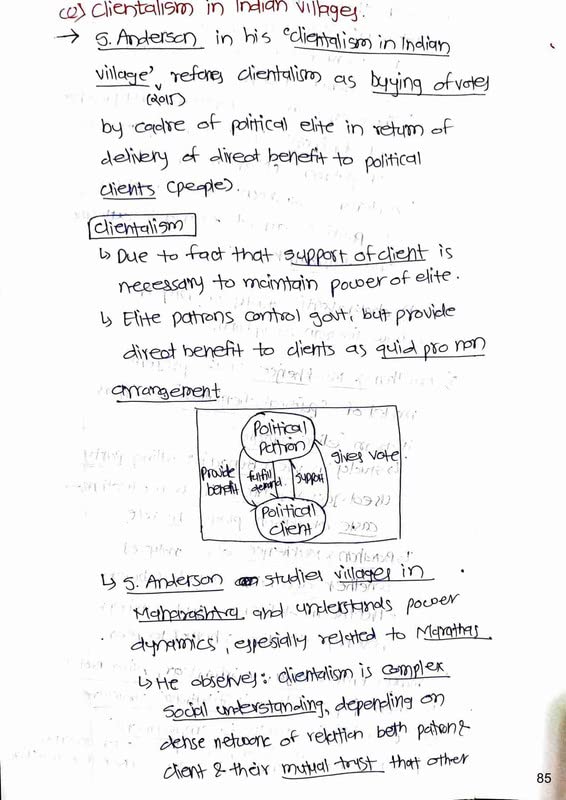 (e) Clientalism in Indian Villages.
→ S. Anderson in his "clientalism in Indian
village', referes clientalism as buying of votes
(2015)
by cadre of political elite in return of
delivery of direct benefit to political
clients (people).
clientalism
↳ Due to fact that support of client is
necessary to maintain power of elite.
↳ Elite patrons control govt, but provide
direct benefit to clients as quid pro non
arrangement
Political
Patron
gives vote.
Provide benefit
fulfill demand
support
Political
client
↳ S. Anderson studies villages in
Maharashtra and understands power
dynamics, especially related to Marathas
↳ He observes: clientalism is complex
social understanding, depending on
dense network of relation beth patron &
client & their mutual trust that other
85